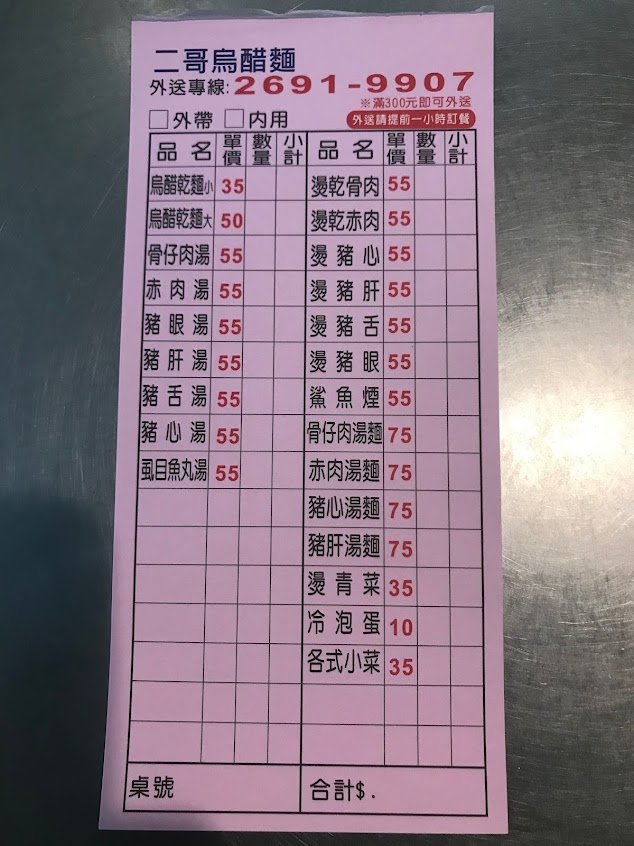 二哥烏醋麵
外送專線:2691-9907
※滿300元即可外送
□外帶 □內用 外送請提前一小時訂餐
品名 單價 數量 小計 品名 單價 數量 小計
烏醋乾麵小 35 燙乾骨肉 55
烏醋乾麵大 50 燙乾赤肉 55
骨仔肉湯 55 燙豬心 55
赤肉湯 55 燙豬肝 55
豬眼湯 55 燙豬舌 55
豬肝湯 55 燙豬眼 55
豬舌湯 55 鯊魚煙 55
豬心湯 55 骨仔肉湯麵 75
虱目魚丸湯 55 赤肉湯麵 75
豬心湯麵 75
豬肝湯麵 75
燙青菜 35
冷泡蛋 10
各式小菜 35
桌號 合計$.